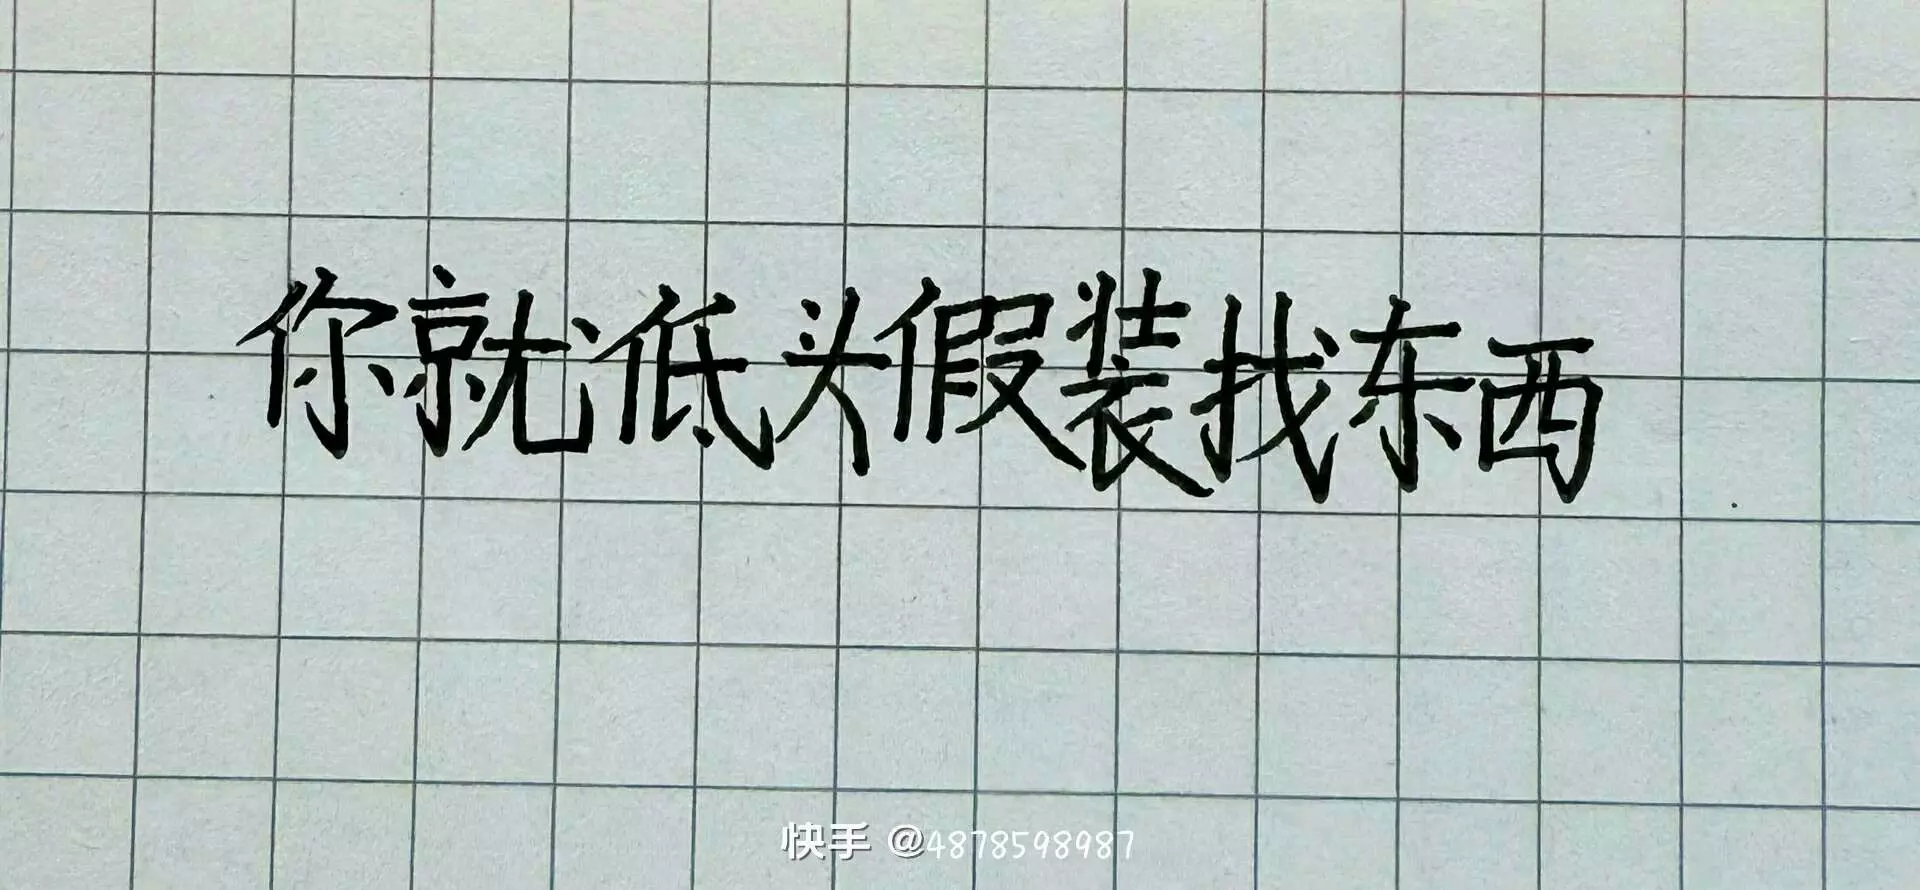 你就低头假装找东西
快手 @4878598987